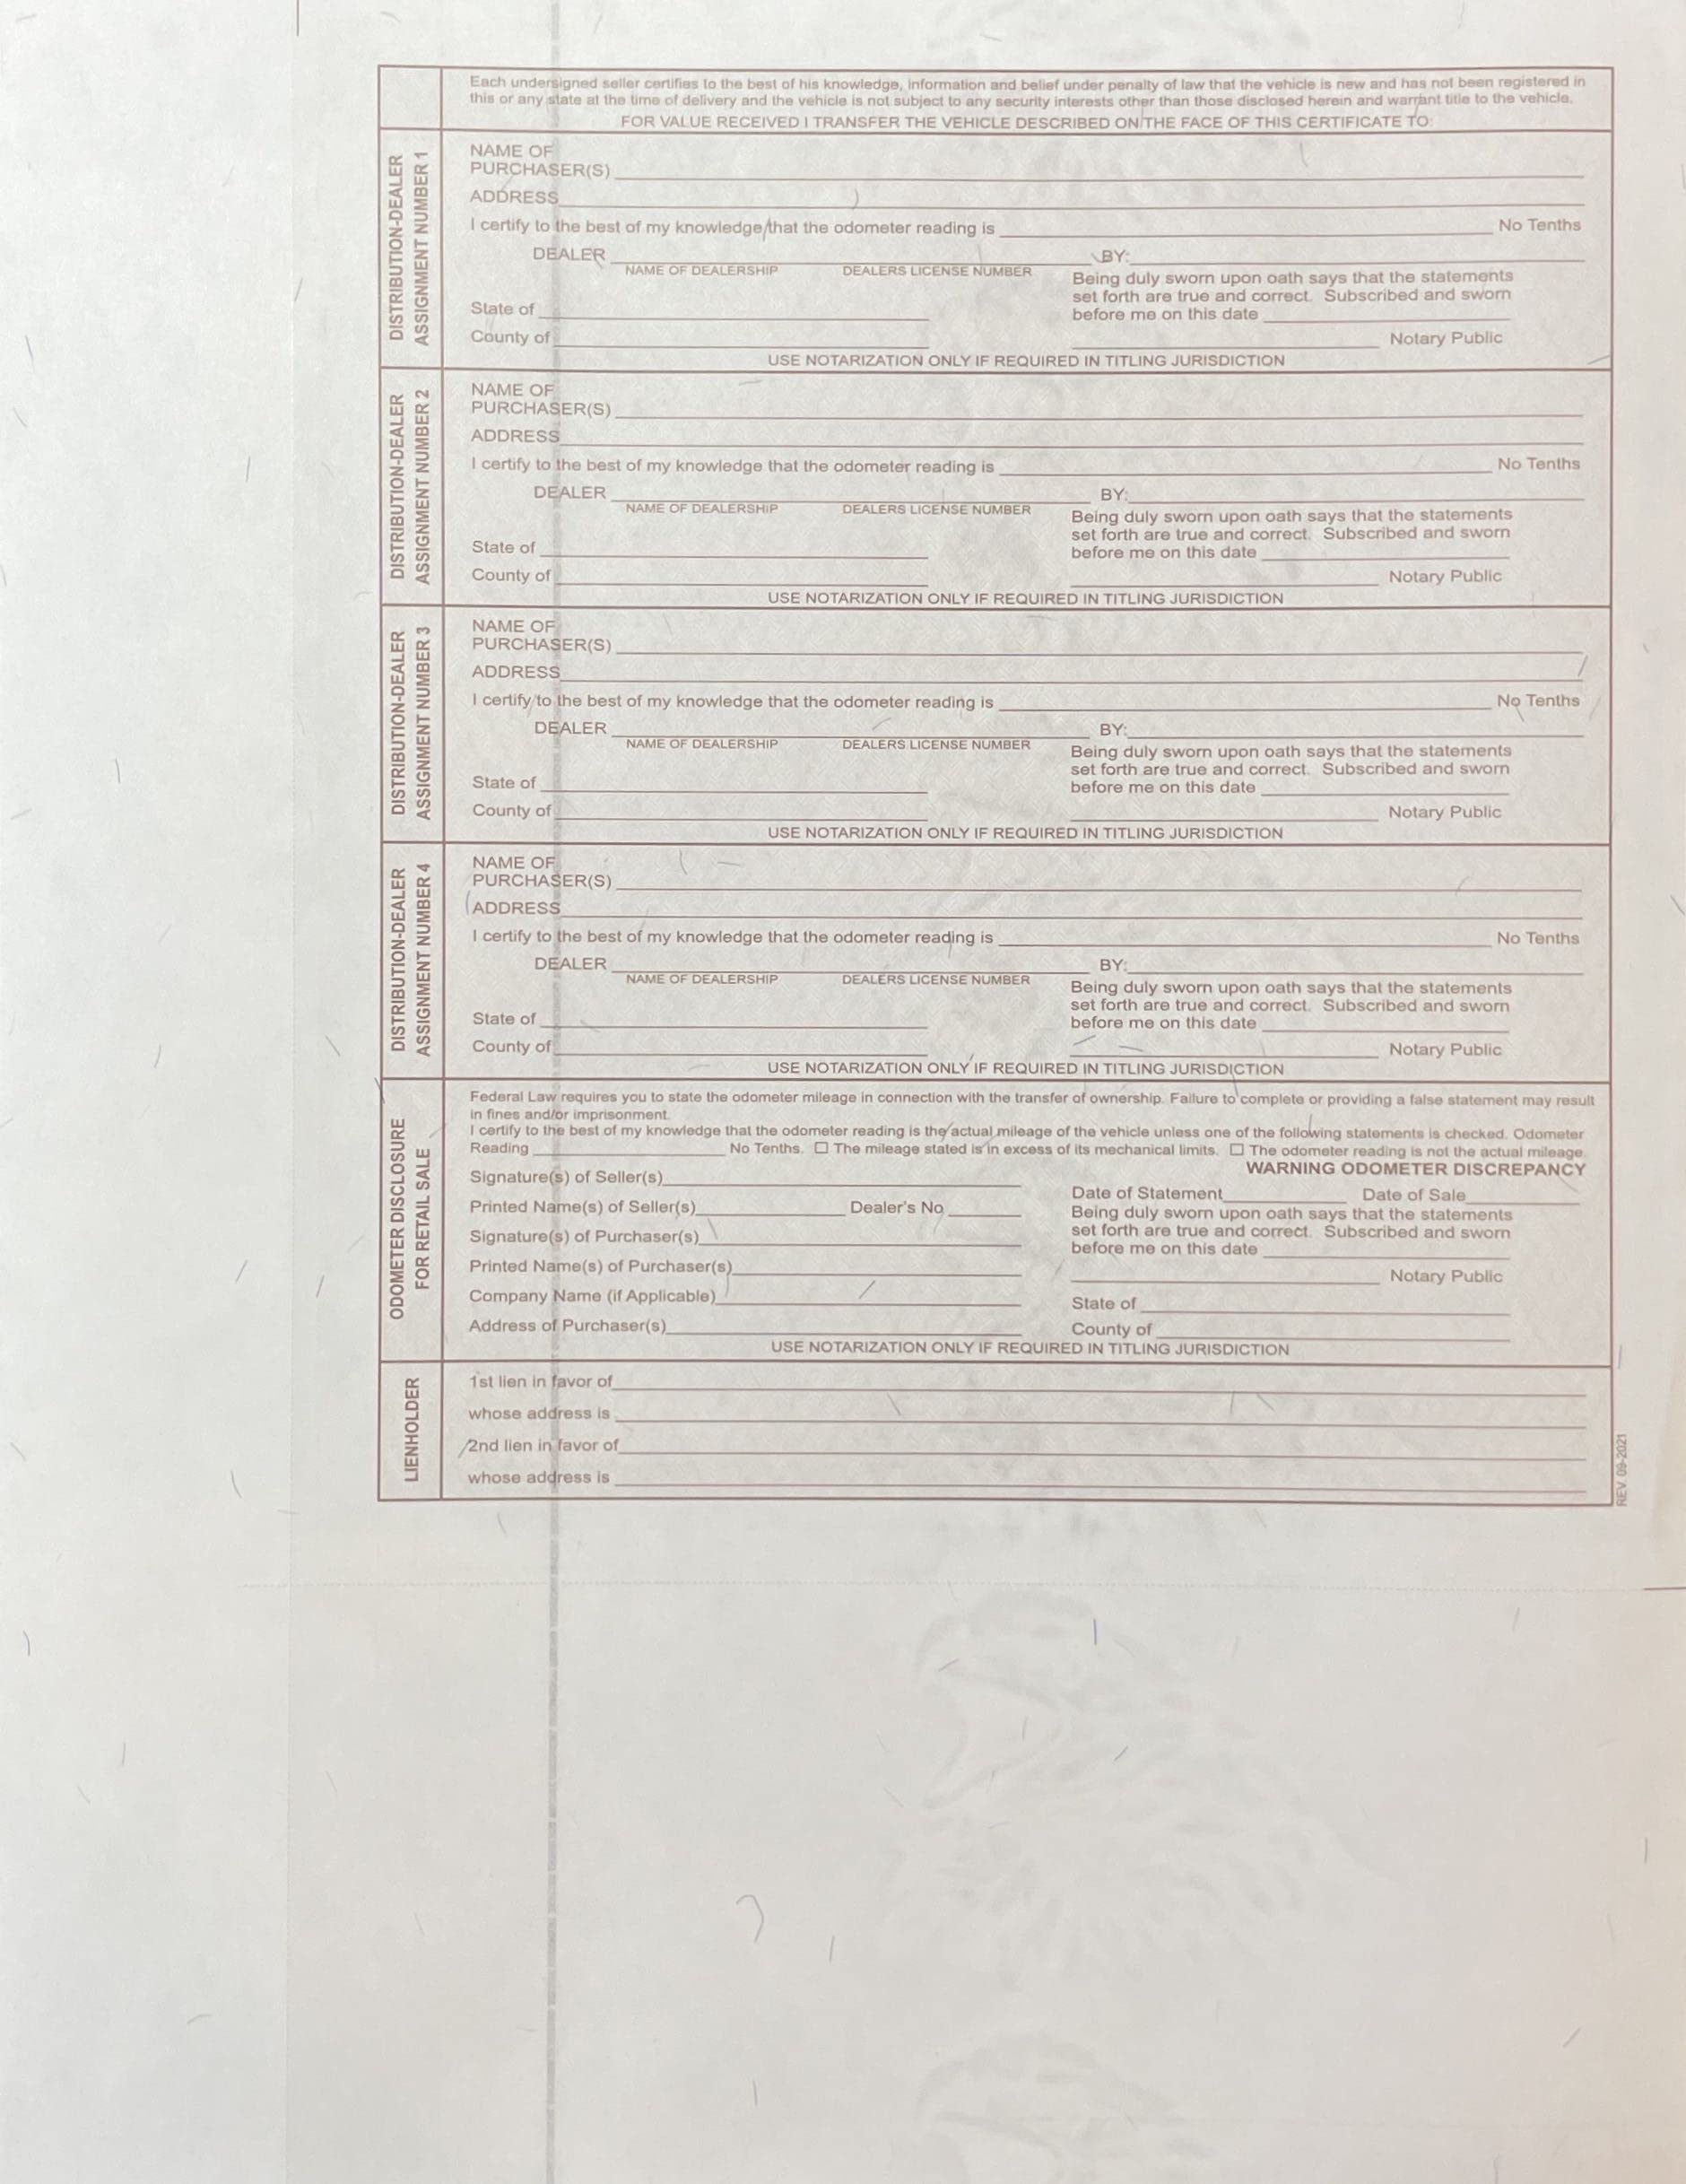 Each undersigned seller certifies to the best of his knowledge, information and belief under penalty of law that the vehicle is new and has not been registered in
this or any state at the time of delivery and the vehicle is not subject to any security interests other than those disclosed herein and warrant title to the vehicle.
FOR VALUE RECEIVED I TRANSFER THE VEHICLE DESCRIBED ON THE FACE OF THIS CERTIFICATE TO:
DISTRIBUTION-DEALER
ASSIGNMENT NUMBER 1
NAME OF
PURCHASER(S)
ADDRESS
I certify to the best of my knowledge that the odometer reading is No Tenths
DEALER BY:
NAME OF DEALERSHIP DEALERS LICENSE NUMBER
Being duly sworn upon oath says that the statements
set forth are true and correct. Subscribed and sworn
State of before me on this date
County of Notary Public
USE NOTARIZATION ONLY IF REQUIRED IN TITLING JURISDICTION
DISTRIBUTION-DEALER
ASSIGNMENT NUMBER 2
NAME OF
PURCHASER(S)
ADDRESS
I certify to the best of my knowledge that the odometer reading is No Tenths
DEALER BY:
NAME OF DEALERSHIP DEALERS LICENSE NUMBER
Being duly sworn upon oath says that the statements
set forth are true and correct. Subscribed and sworn
State of before me on this date
County of Notary Public
USE NOTARIZATION ONLY IF REQUIRED IN TITLING JURISDICTION
DISTRIBUTION-DEALER
ASSIGNMENT NUMBER 3
NAME OF
PURCHASER(S)
ADDRESS
I certify to the best of my knowledge that the odometer reading is No Tenths
DEALER BY:
NAME OF DEALERSHIP DEALERS LICENSE NUMBER
Being duly sworn upon oath says that the statements
set forth are true and correct. Subscribed and sworn
State of before me on this date
County of Notary Public
USE NOTARIZATION ONLY IF REQUIRED IN TITLING JURISDICTION
DISTRIBUTION-DEALER
ASSIGNMENT NUMBER 4
NAME OF
PURCHASER(S)
ADDRESS
I certify to the best of my knowledge that the odometer reading is No Tenths
DEALER BY:
NAME OF DEALERSHIP DEALERS LICENSE NUMBER
Being duly sworn upon oath says that the statements
set forth are true and correct. Subscribed and sworn
State of before me on this date
County of Notary Public
USE NOTARIZATION ONLY IF REQUIRED IN TITLING JURISDICTION
ODOMETER DISCLOSURE
FOR RETAIL SALE
Federal Law requires you to state the odometer mileage in connection with the transfer of ownership. Failure to complete or providing a false statement may result
in fines and/or imprisonment.
I certify to the best of my knowledge that the odometer reading is the actual mileage of the vehicle unless one of the following statements is checked. Odometer
Reading No Tenths. ☐ The mileage stated is in excess of its mechanical limits. ☐ The odometer reading is not the actual mileage.
WARNING ODOMETER DISCREPANCY
Signature(s) of Seller(s)
Date of Statement Date of Sale
Printed Name(s) of Seller(s) Dealer's No
Being duly sworn upon oath says that the statements
set forth are true and correct. Subscribed and sworn
Signature(s) of Purchaser(s)
before me on this date
Printed Name(s) of Purchaser(s)
Notary Public
Company Name (if Applicable)
State of
Address of Purchaser(s)
County of
USE NOTARIZATION ONLY IF REQUIRED IN TITLING JURISDICTION
LIENHOLDER
1st lien in favor of
whose address is
2nd lien in favor of
whose address is
REV. 09-2021